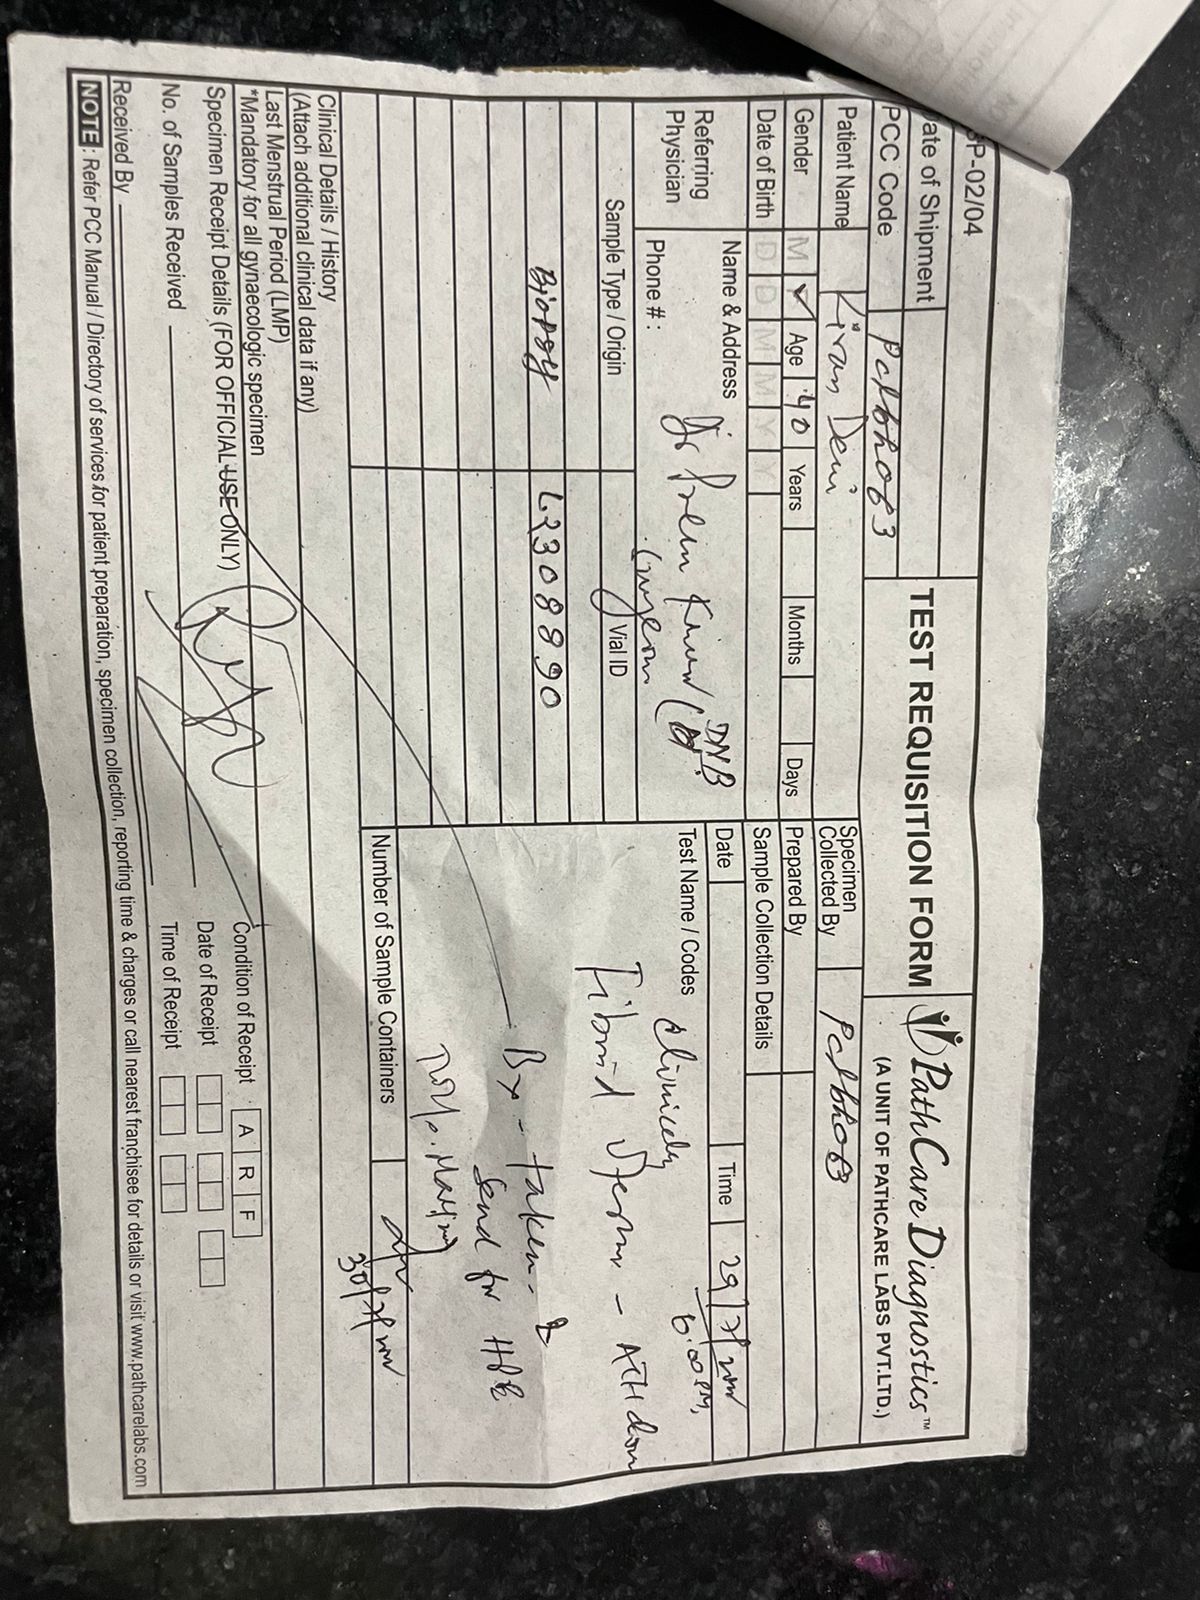 SP-02/04
ate of Shipment
TEST REQUISITION FORM
PathCare Diagnostics™
(A UNIT OF PATHCARE LABS PVT.LTD.)
PCC Code
Patient Name Kiran Devi
Specimen Collected By
Gender M ✓ Age 40 Years Months Days
Prepared By
Date of Birth D D M M Y Y
Sample Collection Details
Date Time 29/7/
6:00 PM,
Referring Physician
Name & Address Dr
DNB
Phone #:
Test Name / Codes Clinically
Fibroid Uterus -
Sample Type / Origin Vial ID
Biopsy L2308890
Bx - taken - &
Send for HPE
Number of Sample Containers
30/7/
Clinical Details / History
(Attach additional clinical data if any)
Last Menstrual Period (LMP)
*Mandatory for all gynaecologic specimen
Specimen Receipt Details (FOR OFFICIAL USE ONLY)
Condition of Receipt A R F
No. of Samples Received
Date of Receipt
Received By
Time of Receipt
NOTE : Refer PCC Manual / Directory of services for patient preparation, specimen collection, reporting time & charges or call nearest franchisee for details or visit www.pathcarelabs.com